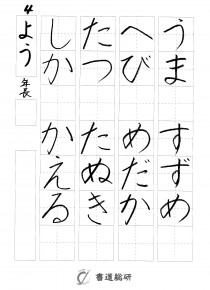 うま すずめ
へび めだか
たつ たぬき
しか かえる
4 よう 年長
書道総研